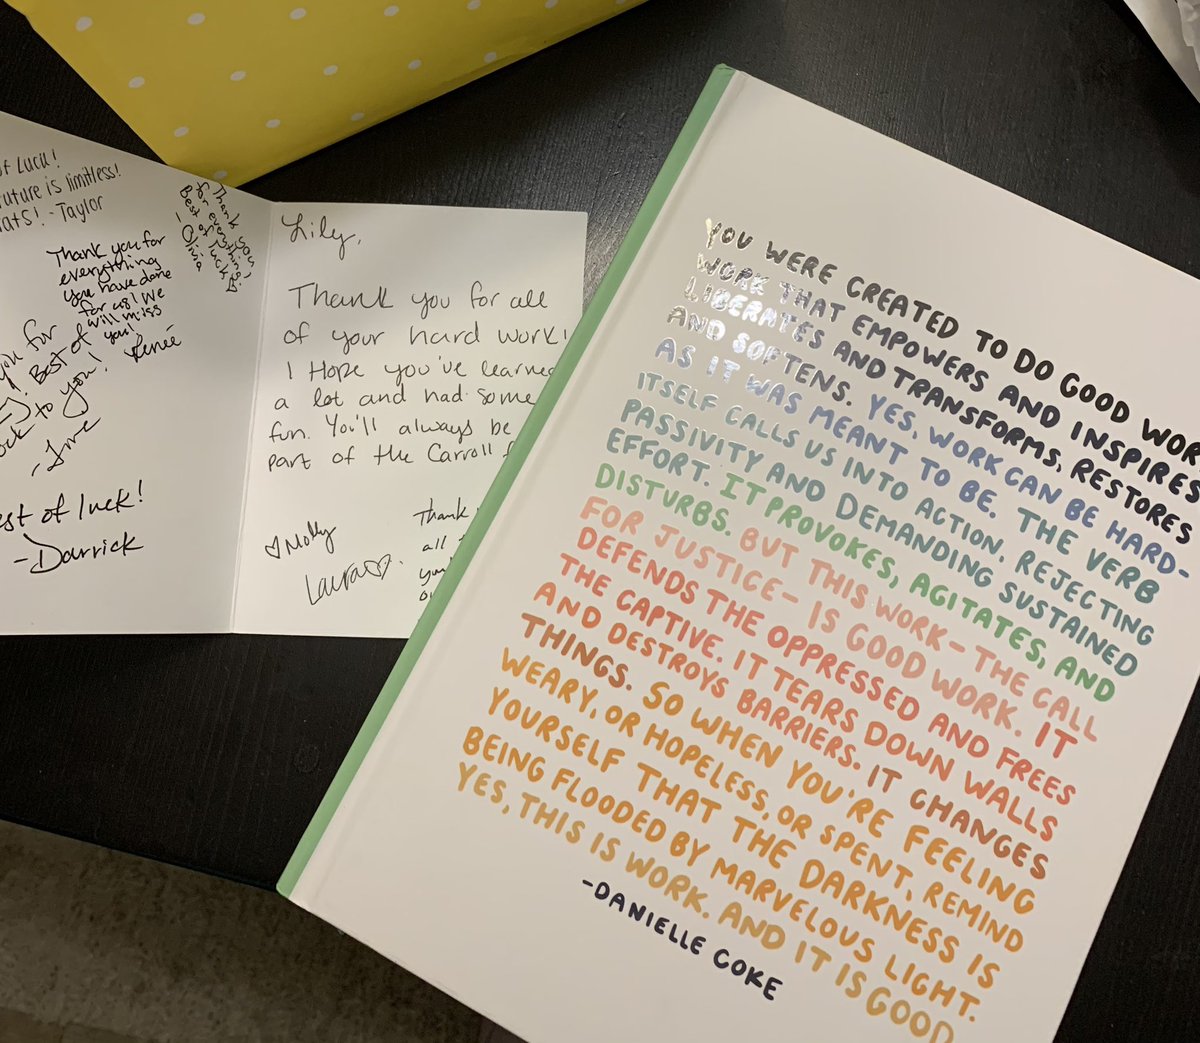 of Luck!
future is limitless!
- Taylor
Thank you
for everything!
Best of luck!
Olivia
Thank you for
everything
you have done
for us! We
will miss
you!
Renée
you for
Best of
to you!
Best of luck!
-Darrick
Lily,
Thank you for all
of your hard work!
I Hope you've learned
a lot and had some
fun. You'll always be
part of the Carroll
♡Molly
Laura♡
Thank
all
YOU WERE CREATED TO DO GOOD WORK
WORK THAT EMPOWERS AND INSPIRES
LIBERATES AND TRANSFORMS, RESTORES
AND SOFTENS. YES, WORK CAN BE HARD-
AS IT WAS MEANT TO BE. THE VERB
ITSELF CALLS US INTO ACTION, REJECTING
PASSIVITY AND DEMANDING SUSTAINED
EFFORT. IT PROVOKES, AGITATES, AND
DISTURBS. BUT THIS WORK- THE CALL
FOR JUSTICE- IS GOOD WORK. IT
DEFENDS THE OPPRESSED AND FREES
THE CAPTIVE. IT TEARS DOWN WALLS
AND DESTROYS BARRIERS. IT CHANGES
THINGS. SO WHEN YOU'RE FEELING
WEARY, OR HOPELESS, OR SPENT, REMIND
YOURSELF THAT THE DARKNESS IS
BEING FLOODED BY MARVELOUS LIGHT.
YES, THIS IS WORK. AND IT IS GOOD
-DANIELLE COKE